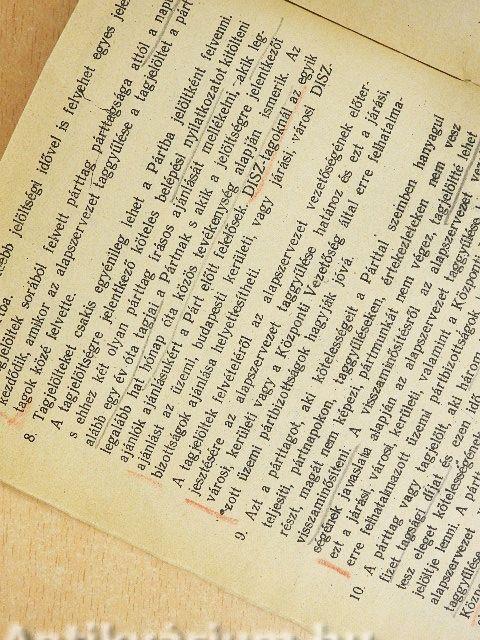 jelöltségi idővel is felvehet egyes jele
jelöltek sorából felvett párttag párttagsága attól a nap
kezdődik, amikor az alapszervezet taggyűlése a tagjelöltet a párt
tagok közé felvette.
8. Tagjelölteket csakis egyénileg lehet a Pártba jelöltként felvenni.
A tagjelöltségre jelentkező köteles belépési nyilatkozatot kitölteni
s ehhez két olyan párttag írásos ajánlását mellékelni, akik leg-
alább egy év óta tagjai a Pártnak s akik a jelöltségre jelentkezőt
legalább hat hónap óta közös tevékenység alapján ismerik. Az
ajánlók ajánlásukért a Párt előtt felelősek DISZ-tagoknál az egyik
ajánlást az üzemi, budapesti kerületi, vagy járási, városi DISZ-
bizottságok ajánlása helyettesítheti.
A tagjelöltek felvételéről az alapszervezet vezetőségének előter-
jesztésére az alapszervezet taggyűlése határoz és ezt a járási,
városi, kerületi vagy a Központi Vezetőség által erre felhatalma-
zott üzemi pártbizottságok hagyják jóvá.
9. Azt a párttagot, aki kötelességeit a Párttal szemben hanyagul
teljesíti, pártnapokon, taggyűléseken, értekezleteken nem vesz
részt, magát nem képezi, pártmunkát nem végez, tagjelöltté lehet
visszaminősíteni. A visszaminősítésről az alapszervezet
ségének javaslata alapján az alapszervezet taggyűlése
ezt a járási, városi kerületi, valamint a Központi
erre felhatalmazott üzemi pártbizottságok
10. A párttag vagy tagjelölt, aki három
fizet tagsági díjat és ezen idő
tesz eleget kötelességének
jelöltje lenni. A párt
alapszervezet
taggyűlése